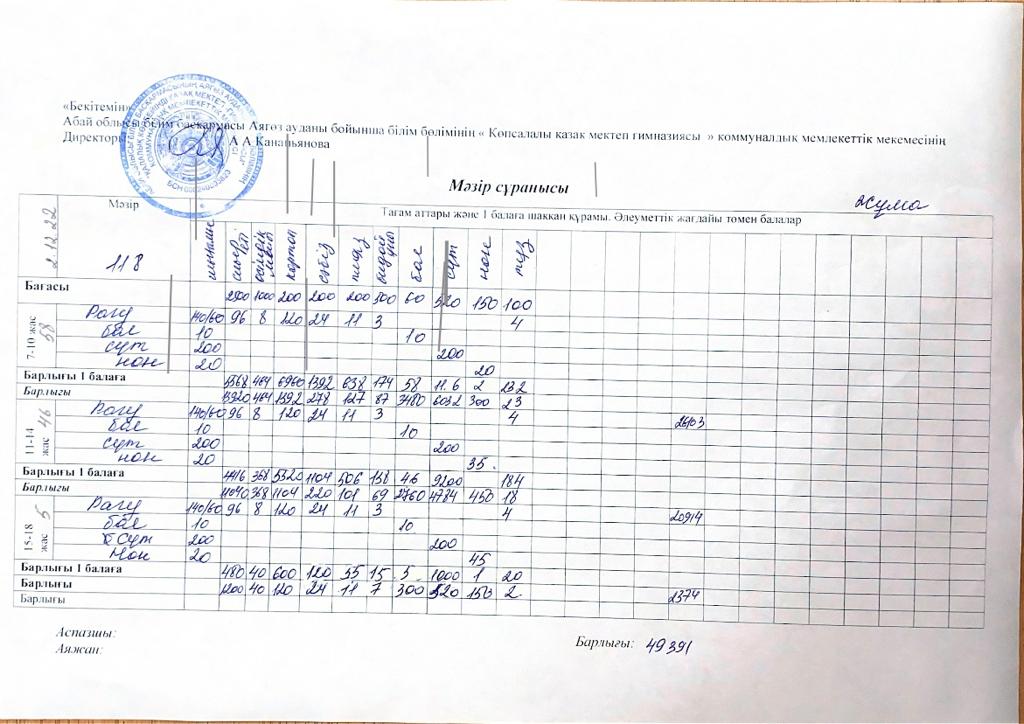 «Бекітемін»
Абай облысы білім басқармасы Аягөз ауданы бойынша білім бөлімінің « Көпсалалы қазақ мектеп гимназиясы » коммуналдық мемлекеттік мекемесінің
Директоры А А Канапьянова
Мәзір сұранысы
Жұма
2.12.22
Мәзір
118
Тағам аттары және 1 балаға шаққан құрамы. Әлеуметтік жағдайы төмен балалар
картоп сәбіз пияз бидай ұны бал сүт нон тұз
Бағасы 2500 1000 200 200 200 500 60 520 150 100
7-10 жас 58
Рагу 140/60 96 8 120 24 11 3 4
бал 10 10
сүт 200 200
нон 20 20
Барлығы 1 балаға 5568 464 6960 1392 638 174 58 11.6 2 232
Барлығы 13920 464 1392 278 127 87 3480 6032 300 23 26103
11-14 жас 46
Рагу 140/60 96 8 120 24 11 3 4
бал 10 10
сүт 200 200
нон 20 35.
Барлығы 1 балаға 4416 368 5520 1104 506 138 46 9200 184
Барлығы 11040 368 1104 220 101 69 2760 4784 450 18 20914
15-18 жас 5
Рагу 140/60 96 8 120 24 11 3 4
бал 10 10
сүт 200 200
нон 20 45
Барлығы 1 балаға 480 40 600 120 55 15 5 1000 1 20
Барлығы 1200 40 120 24 11 7 300 520 150 2 2374
Барлығы
Аспазшы:
Аяжан:
Барлығы: 49391